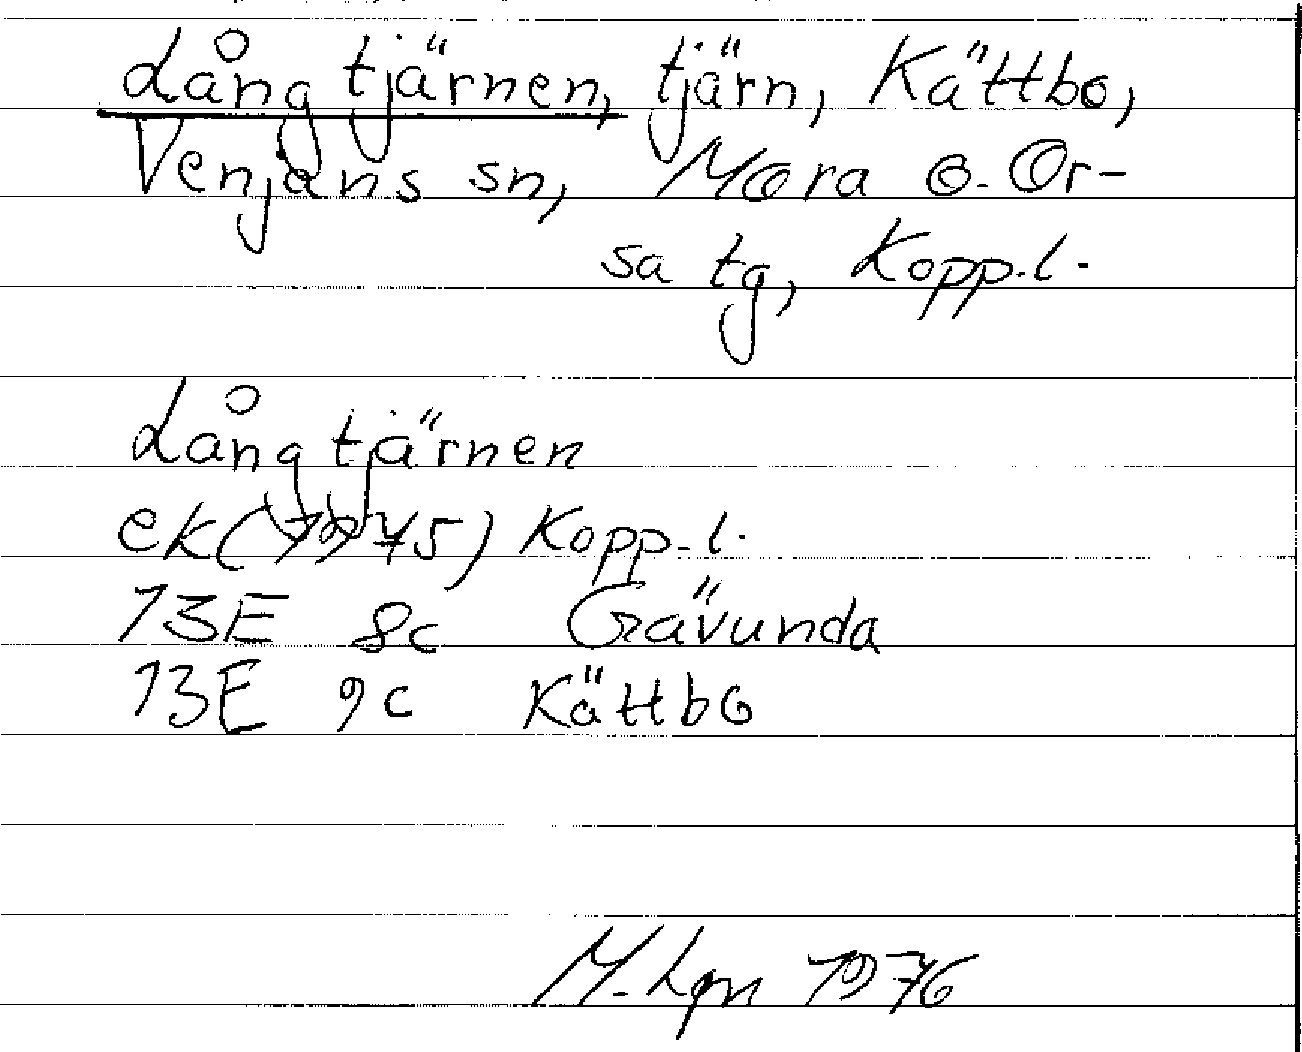 Långtjärnen, tjärn, Kättbo,
Venjans sn, Mora o. Or-
sa tg, Kopp.l.
Långtjärnen
ek(1975) Kopp.l.
13E 8c Gävunda
13E 9c Kättbo
M. Lgn 1976